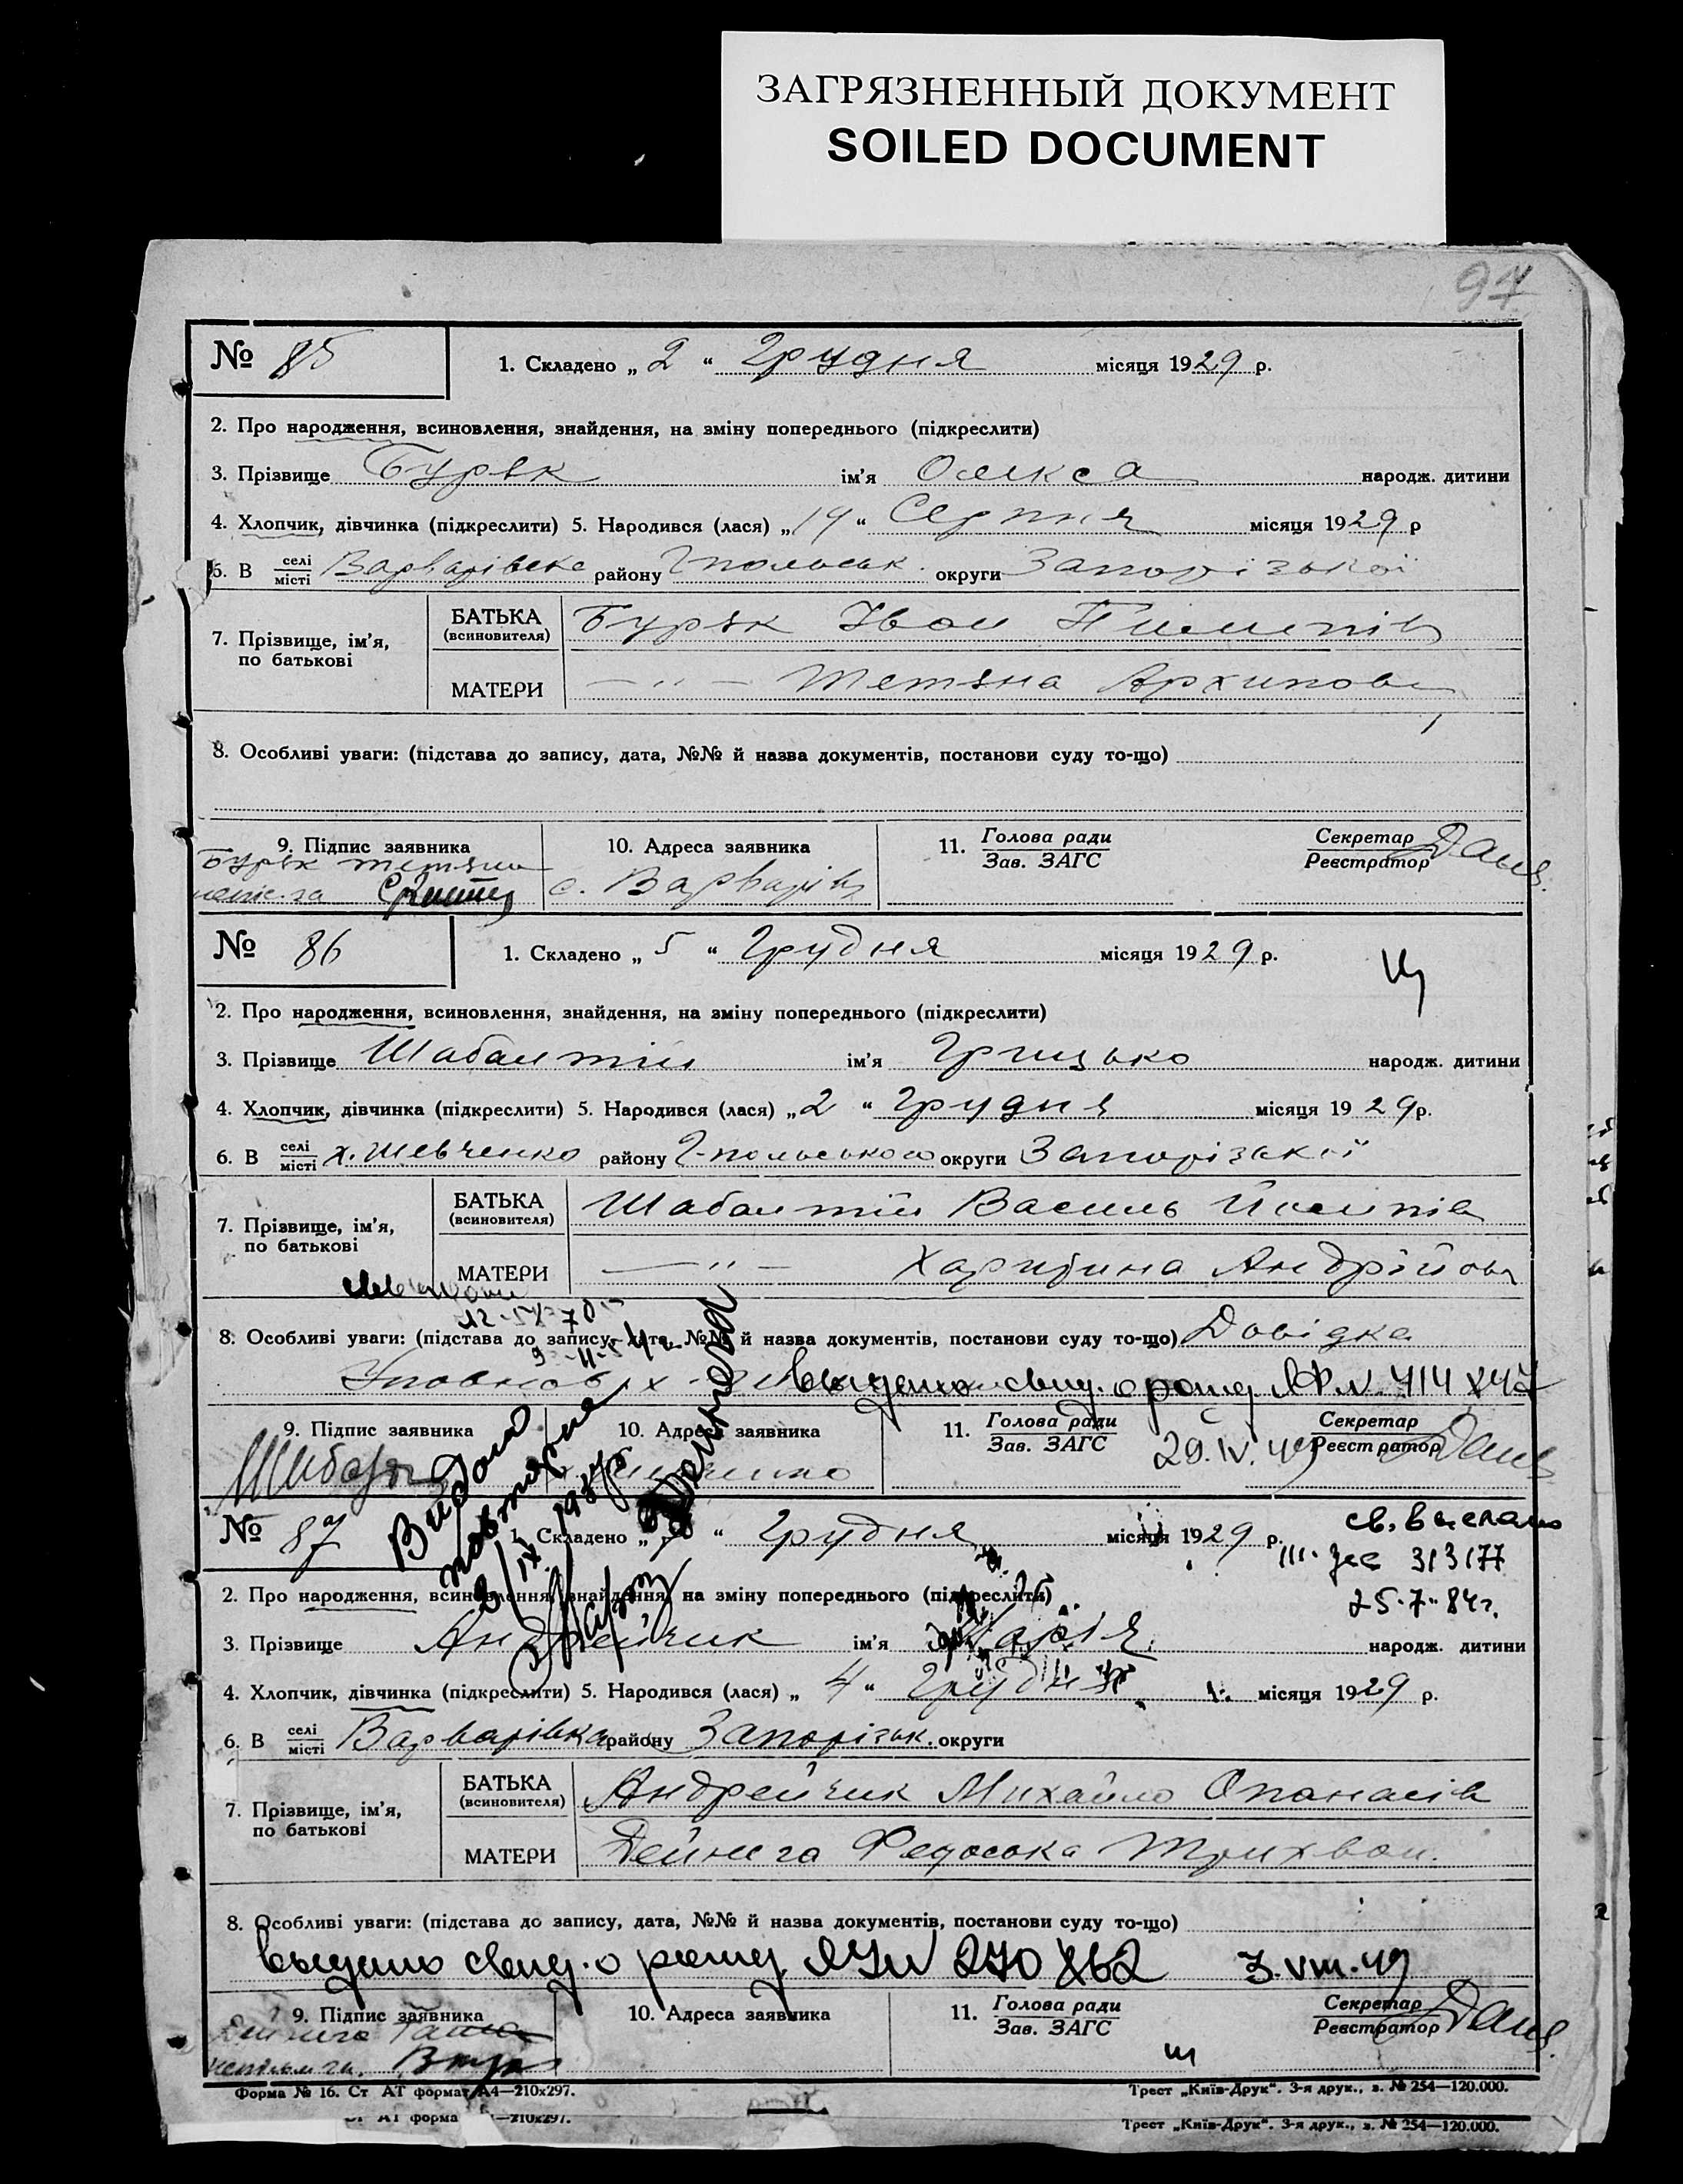 ЗАГРЯЗНЕННЫЙ ДОКУМЕНТ
SOILED DOCUMENT
97
№ 85
1. Складено „ 2 “ Грудня місяця 1929 р.
2. Про народження, всиновлення, знайдення, на зміну попереднього (підкреслити)
3. Прізвище Буряк ім'я Олекса народж. дитини
4. Хлопчик, дівчинка (підкреслити) 5. Народився (лася) „19“ Серпня місяця 1929 р
6. В селі/місті Варварівка району Гпольськ. округи Запорізької
7. Прізвище, ім'я, по батькові
БАТЬКА (всиновителя) Буряк Іван Пилипів
МАТЕРИ —〃— Тетяна Архипова
8. Особливі уваги: (підстава до запису, дата, №№ й назва документів, постанови суду то-що)
9. Підпис заявника 10. Адреса заявника 11. Голова ради/Зав. ЗАГС Секретар/Реєстратор
Буряк Тетяна
с. Варварівка
№ 86
1. Складено „ 5 “ Грудня місяця 1929 р.
2. Про народження, всиновлення, знайдення, на зміну попереднього (підкреслити)
3. Прізвище ім'я Грицько народж. дитини
4. Хлопчик, дівчинка (підкреслити) 5. Народився (лася) „2 “ Грудня місяця 1929р.
6. В селі/місті х. Шевченко району Г-польського округи Запорізької
7. Прізвище, ім'я, по батькові
БАТЬКА (всиновителя) Василь Йосипів
МАТЕРИ —〃— Харитина Андрійова
8. Особливі уваги: (підстава до запису, дата, №№ й назва документів, постанови суду то-що) Довідка
выдано свид. о рожд.
9. Підпис заявника 10. Адреса заявника 11. Голова ради/Зав. ЗАГС 29.IV.49 Секретар/Реєстратор
Видано повторне
№ 87
1. Складено „ “ Грудня місяця 1929 р.
св. выслано
III-жс 313177
25.7.84г.
2. Про народження, всиновлення, знайдення, на зміну попереднього (підкреслити)
3. Прізвище Андрейчик ім'я Марія народж. дитини
4. Хлопчик, дівчинка (підкреслити) 5. Народився (лася) „ 4 “ Грудня місяця 1929 р.
6. В селі/місті Варварівка району Запорізьк. округи
7. Прізвище, ім'я, по батькові
БАТЬКА (всиновителя) Андрейчик Михайло Опанасів
МАТЕРИ Дейнега Федоська Трихвон.
8. Особливі уваги: (підстава до запису, дата, №№ й назва документів, постанови суду то-що)
выдано свид. о рожд. 270862 3.VIII.49
9. Підпис заявника 10. Адреса заявника 11. Голова ради/Зав. ЗАГС Секретар/Реєстратор
Форма № 16. Ст АТ формат А4—210x297. Трест „Київ-Друк“. 3-я друк., з. № 254—120.000.
АТ форма —210x297. Трест „Київ-Друк“. 3-я друк., з. № 254—120.000.